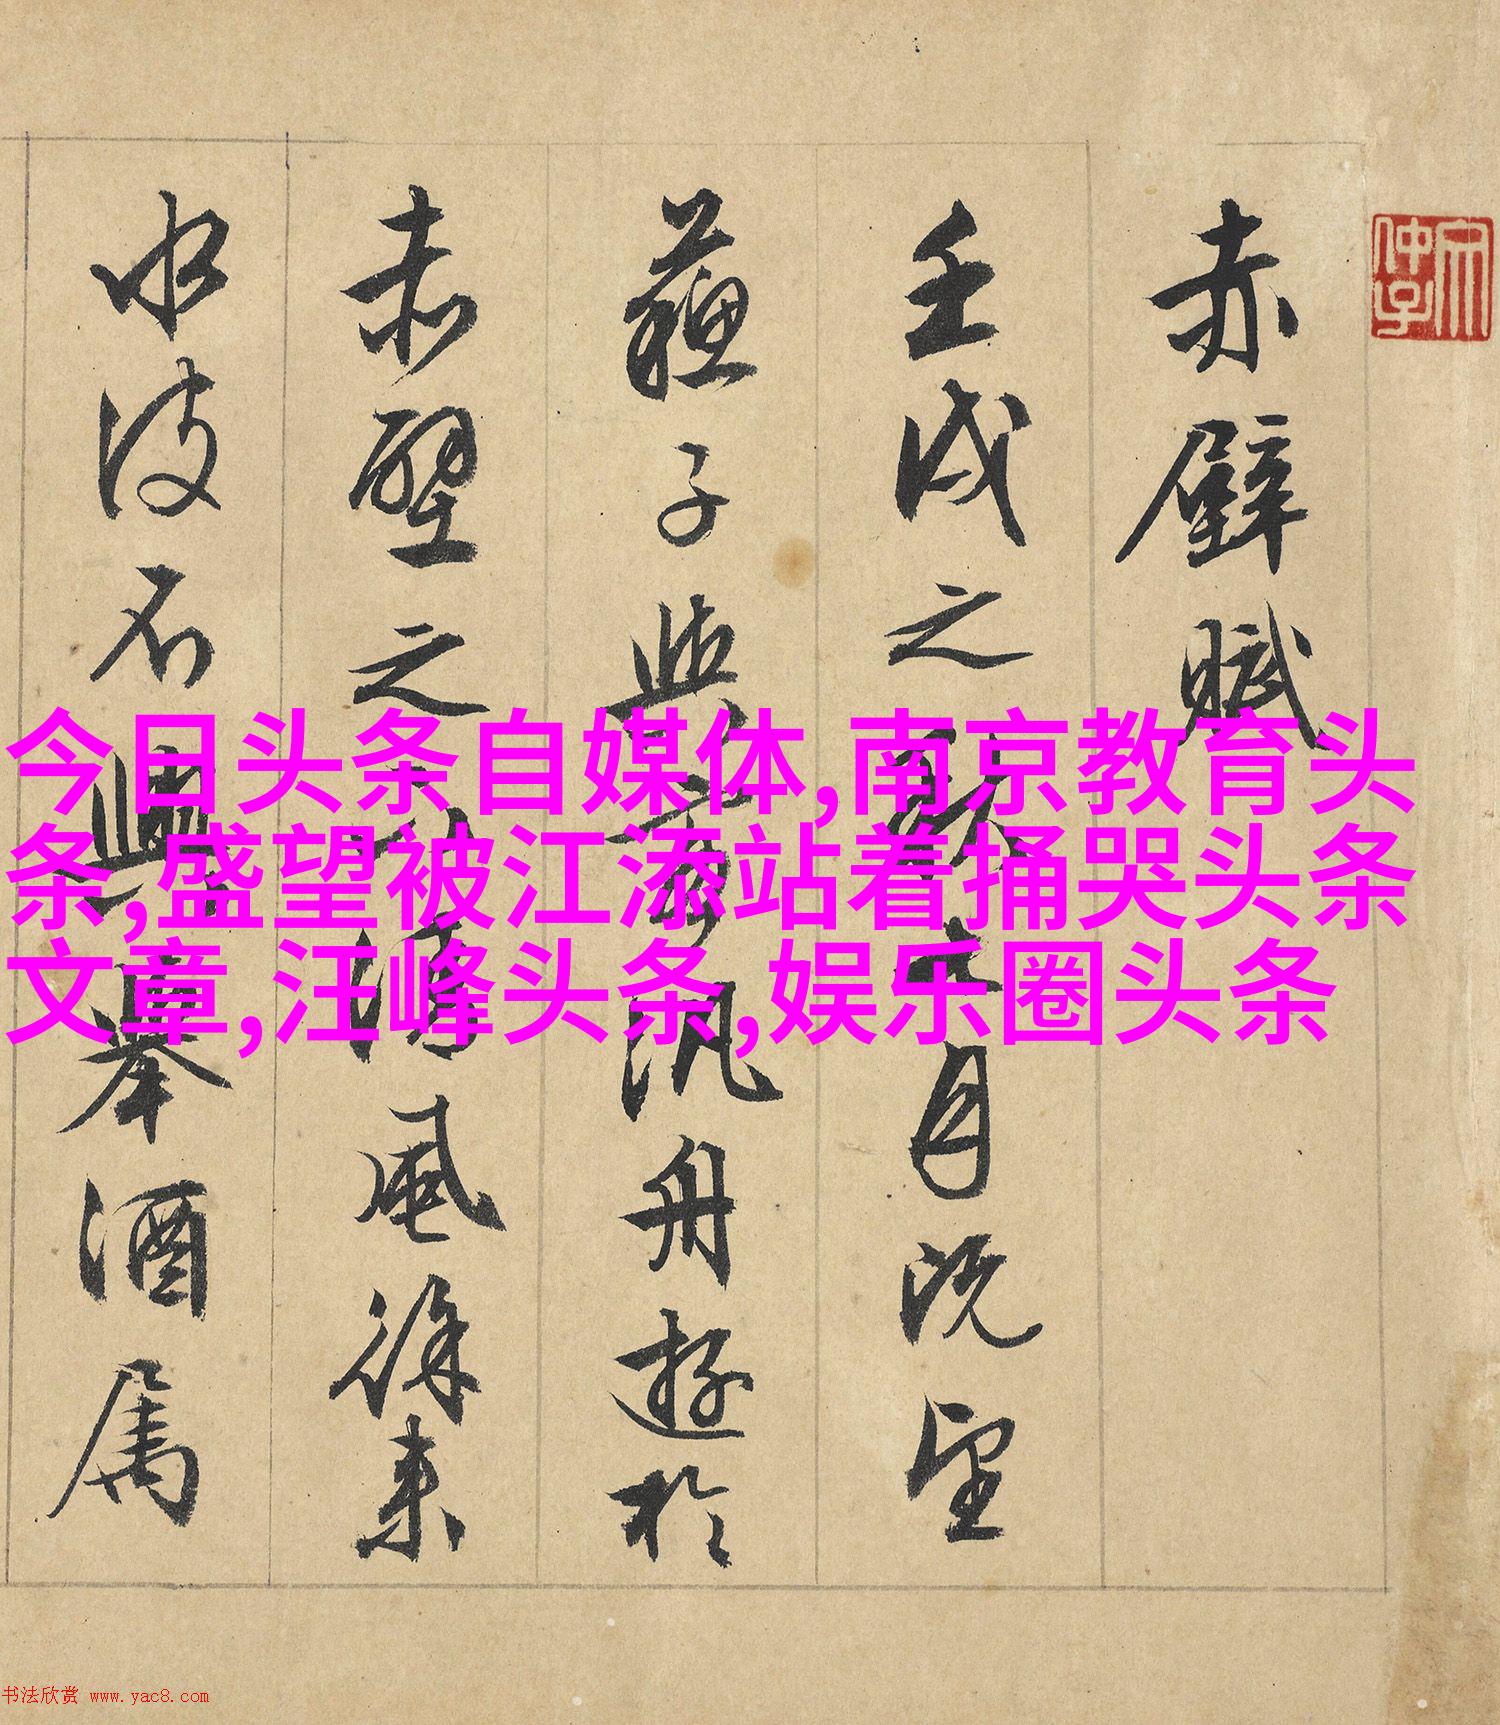 赤壁賦
壬戌之秋七月既望
蘇子與客汎舟遊於
赤壁之下清風徐來
水波不興舉酒屬
今日头条自媒体,南京教育头
条,盛望被江添站着捅哭头条
文章,汪峰头条,娱乐圈头条
书法欣赏 www.yac8.com